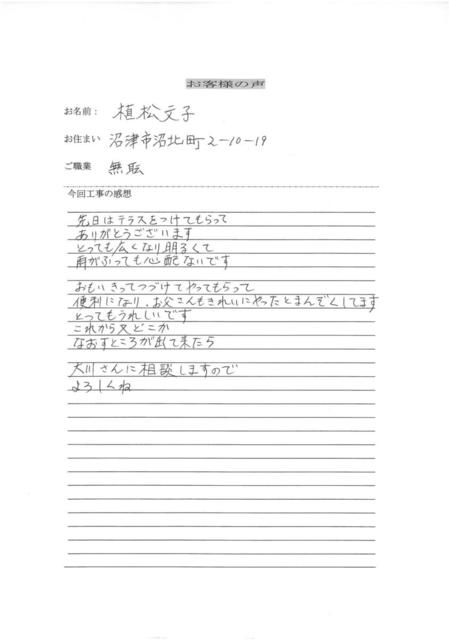 お客様の声
お名前： 植松文子
お住まい 沼津市沼北町2-10-19
ご職業 無職
今回工事の感想
先日はテラスをつけてもらって
ありがとうございます
とっても広くなり明るくて
雨がふっても心配ないです
おもいきってつづけてやってもらって
便利になり、お父さんもきれいにやったとまんぞくしてます
とってもうれしいです
これから又どこか
なおすところが出て来たら
大川さんに相談しますので
よろしくね